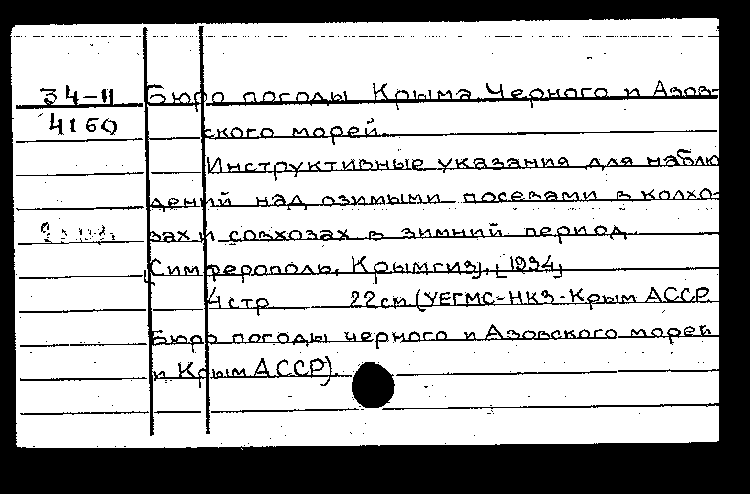 34-11 Бюро погоды Крыма, Черного и Азов-
4160 ского морей.
Инструктивные указания для наблю
дений над озимыми посевами в колхо-
зах и совхозах в зимний период.
[Симферополь, Крымгиз], [1934]
4 стр 22 см (УЕГМС-НКЗ-Крым АССР.
Бюро погоды черного и Азовского морей
и Крым АССР).